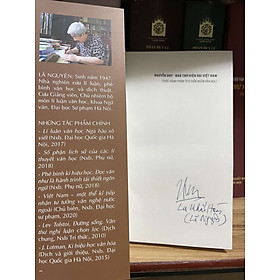 LÃ NGUYÊN: Sinh năm 1947.
Nhà nghiên cứu lí luận, phê
bình văn học và dịch thuật.
Cựu Giảng viên, Chủ nhiệm bộ
môn lí luận văn học, Khoa Ngữ
văn, Đại học Sư phạm Hà Nội.
NHỮNG TÁC PHẨM CHÍNH
- Lí luận văn học Nga hậu xô
viết (Nxb. Đại học Quốc gia Hà
Nội, 2017)
- Số phận lịch sử của các lí
thuyết văn học (Nxb. Phụ nữ,
2018)
- Phê bình kí hiệu học. Đọc văn
như là hành trình tái thiết ngôn
ngữ (Nxb. Phụ nữ, 2018)
- Việt Nam – một thế kỉ tiếp
nhận tư tưởng văn nghệ nước
ngoài (Chủ biên, Nxb. Đại học
sư phạm, 2020)
- Lev Tolstoi. Đường sống. Văn
thư nghị luận chọn lọc (Dịch
chung, Nxb Tri thức, 2010)
- J. Lotman. Kí hiệu học văn hóa
(Dịch và giới thiệu. Nxb. Đại học
Quốc gia Hà Nội, 2015)
NGUYỄN DUY - NHÀ THƠ HIỆN ĐẠI VIỆT NAM
(Lã Nguyên)